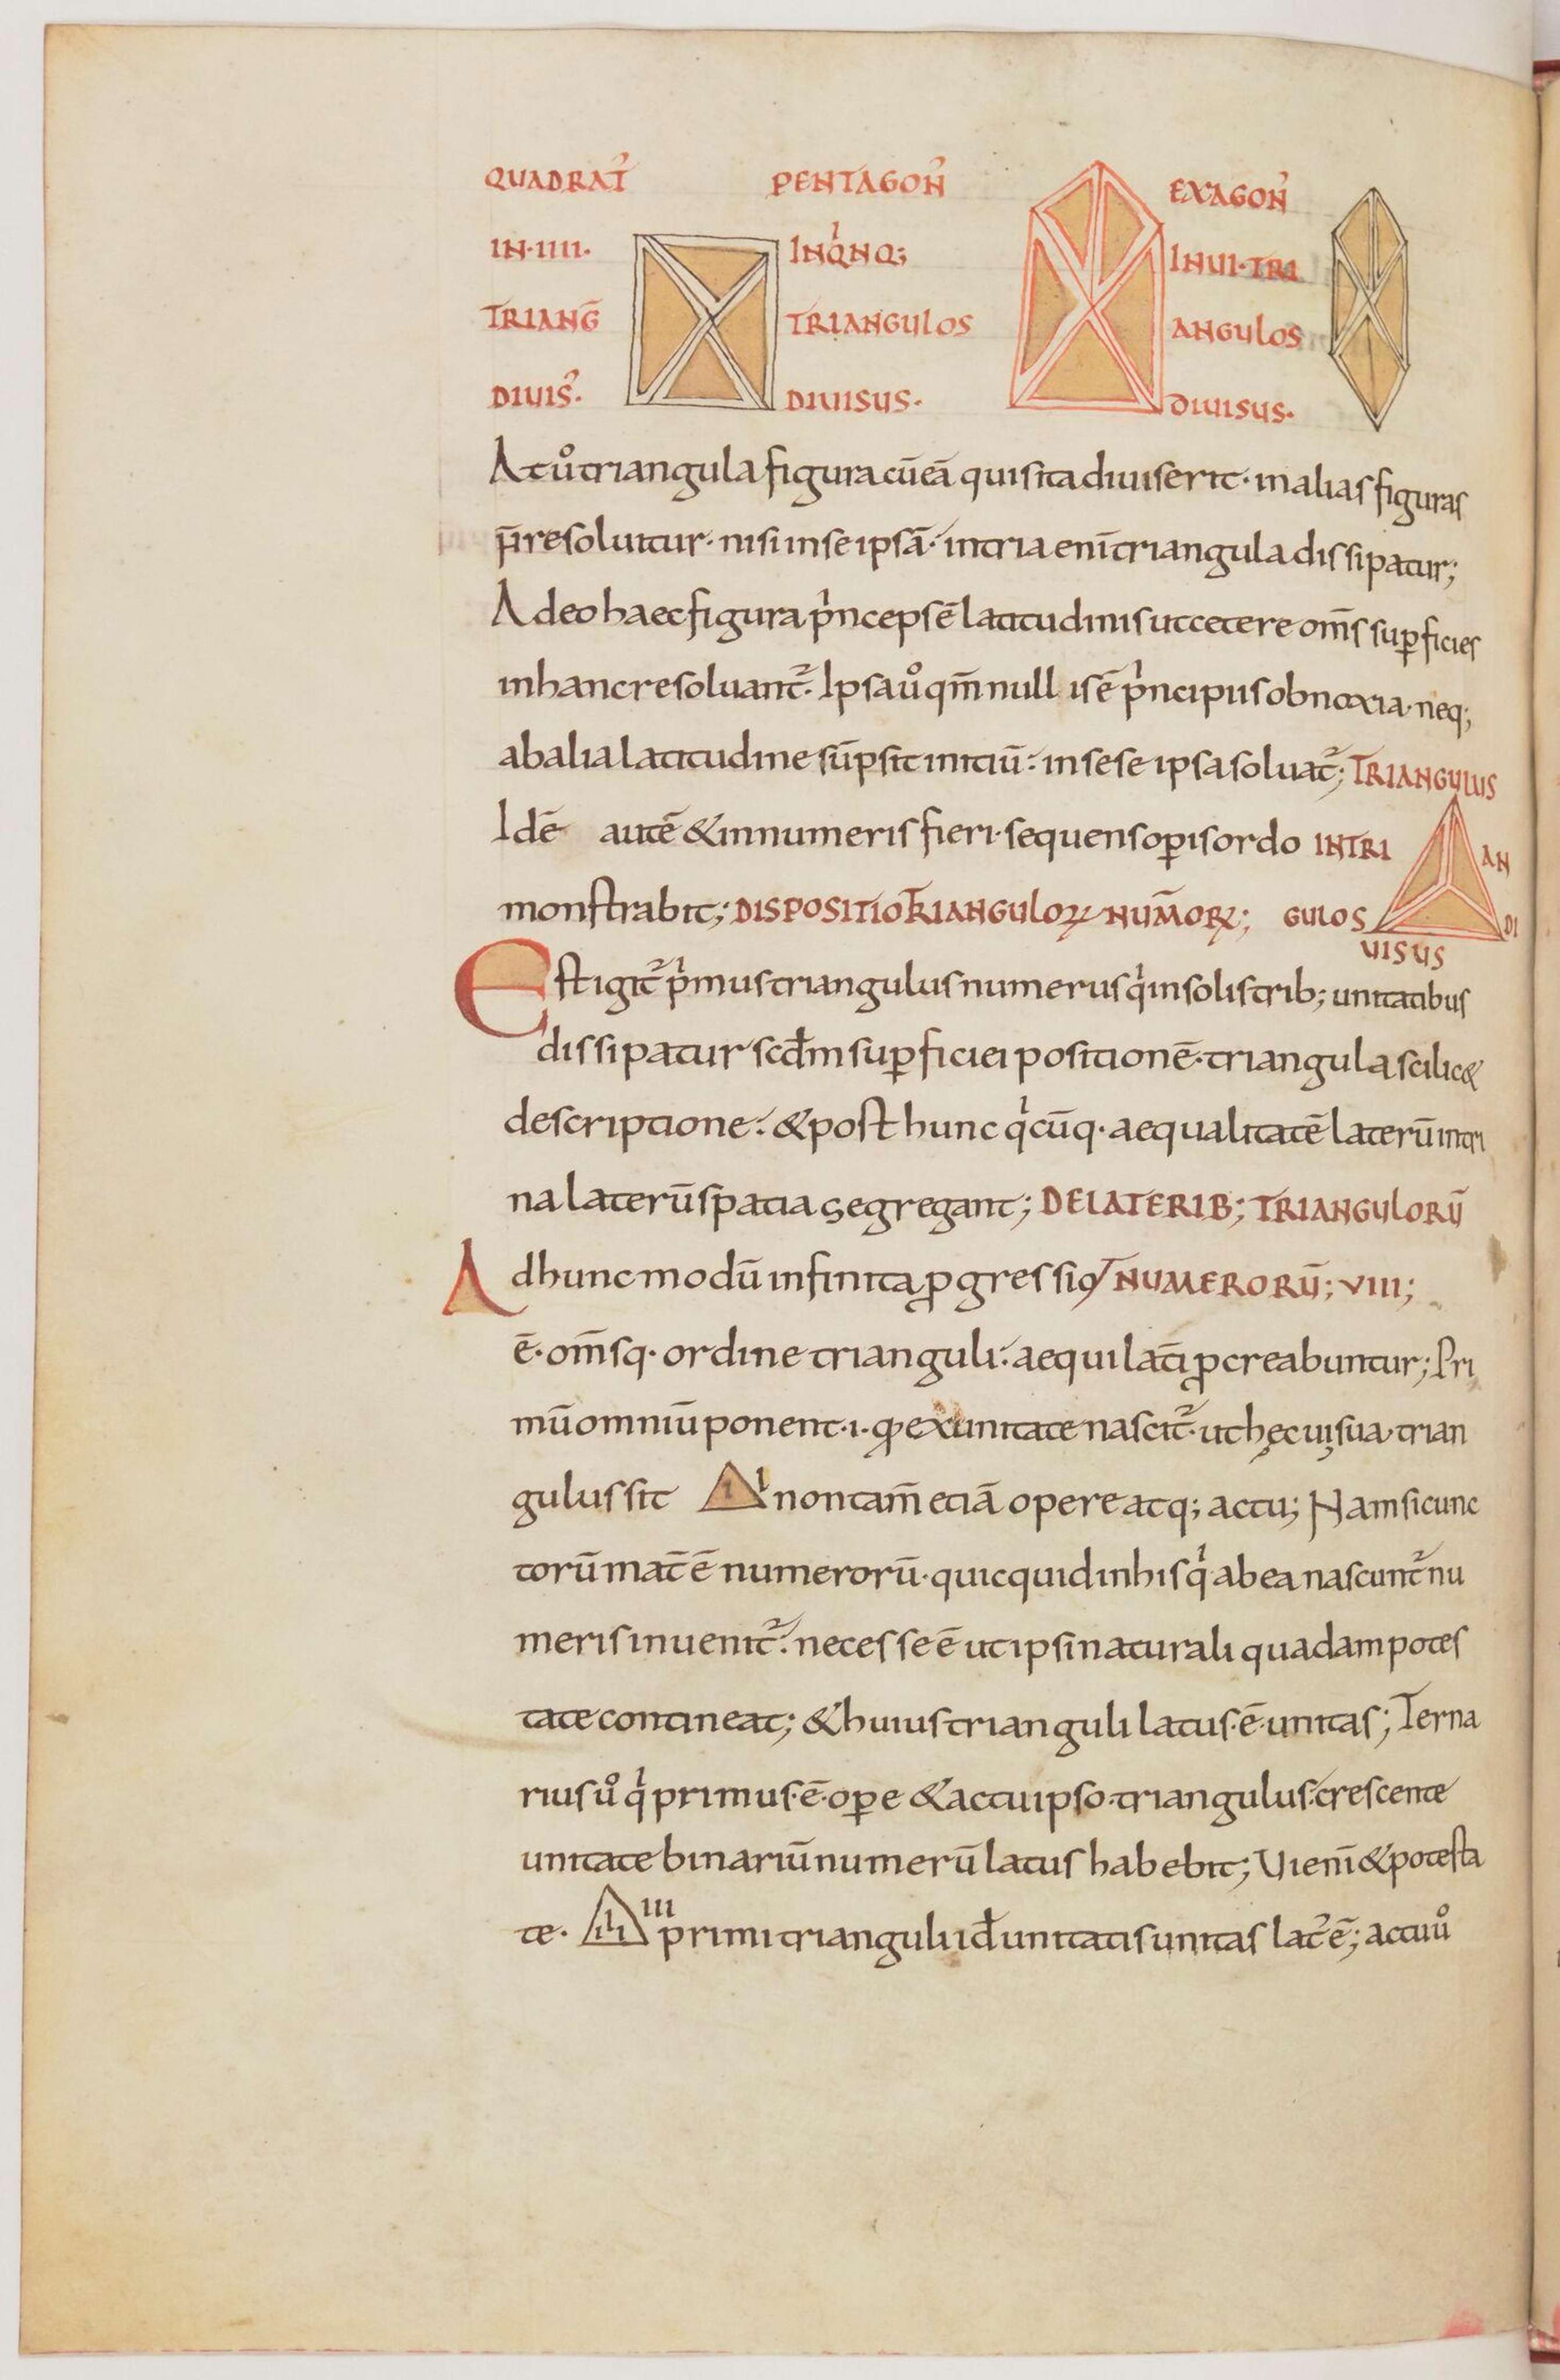 QUADRAT᷒ PENTAGON᷒ EXAGON᷒
IN·IIII· INQͥNQ; INUI·TRI
TRIANḠ TRIANGULOS ANGULOS
DIUIS᷒· DIUISUS· DIUISUS·
At uͦ triangula figura cū eā quis ita diuiserit· in alias figuras
n̄ resoluitur· nisi in se ipsā· in tria eni᷒ triangula dissipatur;
Adeo haec figura pͥnceps ē latitudinis ut cetere om̄s suꝑficies
in hanc resoluant᷒· Ipsa uͦ qm̄ null is ē pͥncipiis obnoxia· neq;
ab alia latitudine sūpsit initiū· in sese ipsa soluat᷒; TRIANGULUS
Idē autē & in numeris fieri· sequens oꝑis ordo INTRI AN
monstrabit; DISPOSITIO TRIANGULOꝜ NUM̄OꝜ; GULOS DI
UISUS
Est igit᷒ pͥmus triangulus numerus qͥ in solis trib; unitatibus
dissipatur scd̄m suꝑficiei positionē· triangula scilic&
descriptione· & post hunc qͥcūq· aequalitatē laterū in tri
na laterū spatia segregant; DE LATERIB; TRIANGULORŪ
Ad hunc modū infinita ꝓgressio NUMERORŪ; VIII;
ē· om̄sq· ordine trianguli· aequilat̄i ꝓcreabuntur; Pri
mū omniū ponent·i· ꝙ ex unitate nascit᷒· ut hęc ui sua· trian
gulus sit I I non tam̄ etiā opere atq; actu; Nam si cunc
torū mat̄ ē numerorū· quicquid in his qͥ ab ea nascunt᷒ nu
meris inuenit᷒· necesse ē ut ipsi naturali quadam potes
tate contineat; & huius trianguli latus·ē·unitas; Terna
rius uͦ qͥ primus·ē·oꝑe & actu ipso·triangulus·crescente
unitate binariū numerū latus habebit; Ui eni᷒ & potesta
te· III III primi trianguli id̄ unitatis unitas lat᷒ ē; actu uͦ